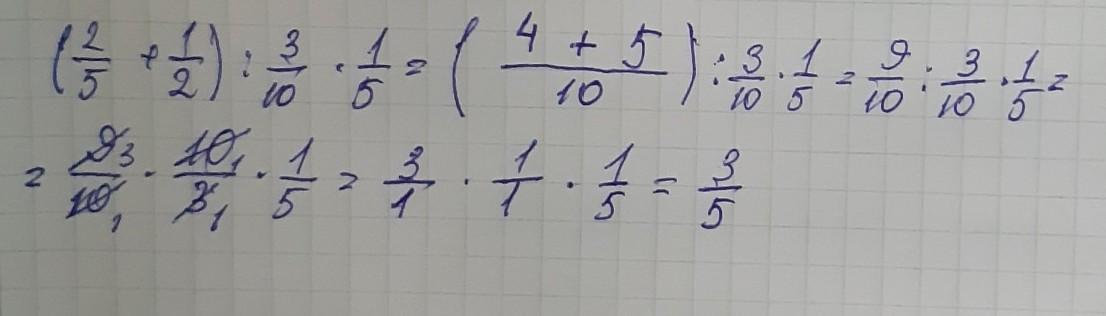 (2/5 + 1/2) : 3/10 · 1/5 = ((4 + 5)/10) : 3/10 · 1/5 = 9/10 : 3/10 · 1/5 =
= 9 3/10 1 · 10 1/3 1 · 1/5 = 3/1 · 1/1 · 1/5 = 3/5